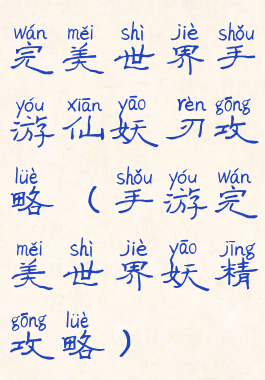 wán měi shì jiè shǒu
完美世界手
yóu xiān yāo rèn gōng
游仙妖刃攻
lüè shǒu yóu wán
略（手游完
měi shì jiè yāo jīng
美世界妖精
gōng lüè
攻略）